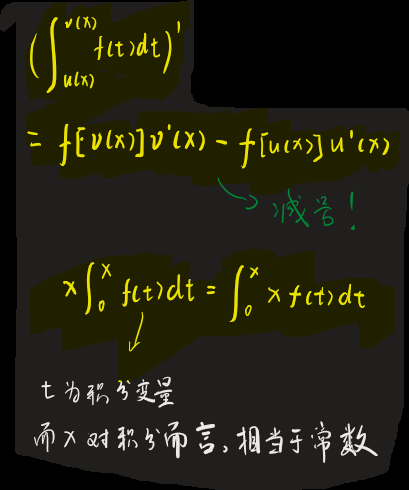 (∫_{u(x)}^{v(x)} f(t)dt)'
= f[v(x)]v'(x) - f[u(x)]u'(x)
→ 减号!
x∫_0^x f(t)dt = ∫_0^x x f(t)dt
t为积分变量
而x对积分而言,相当于常数